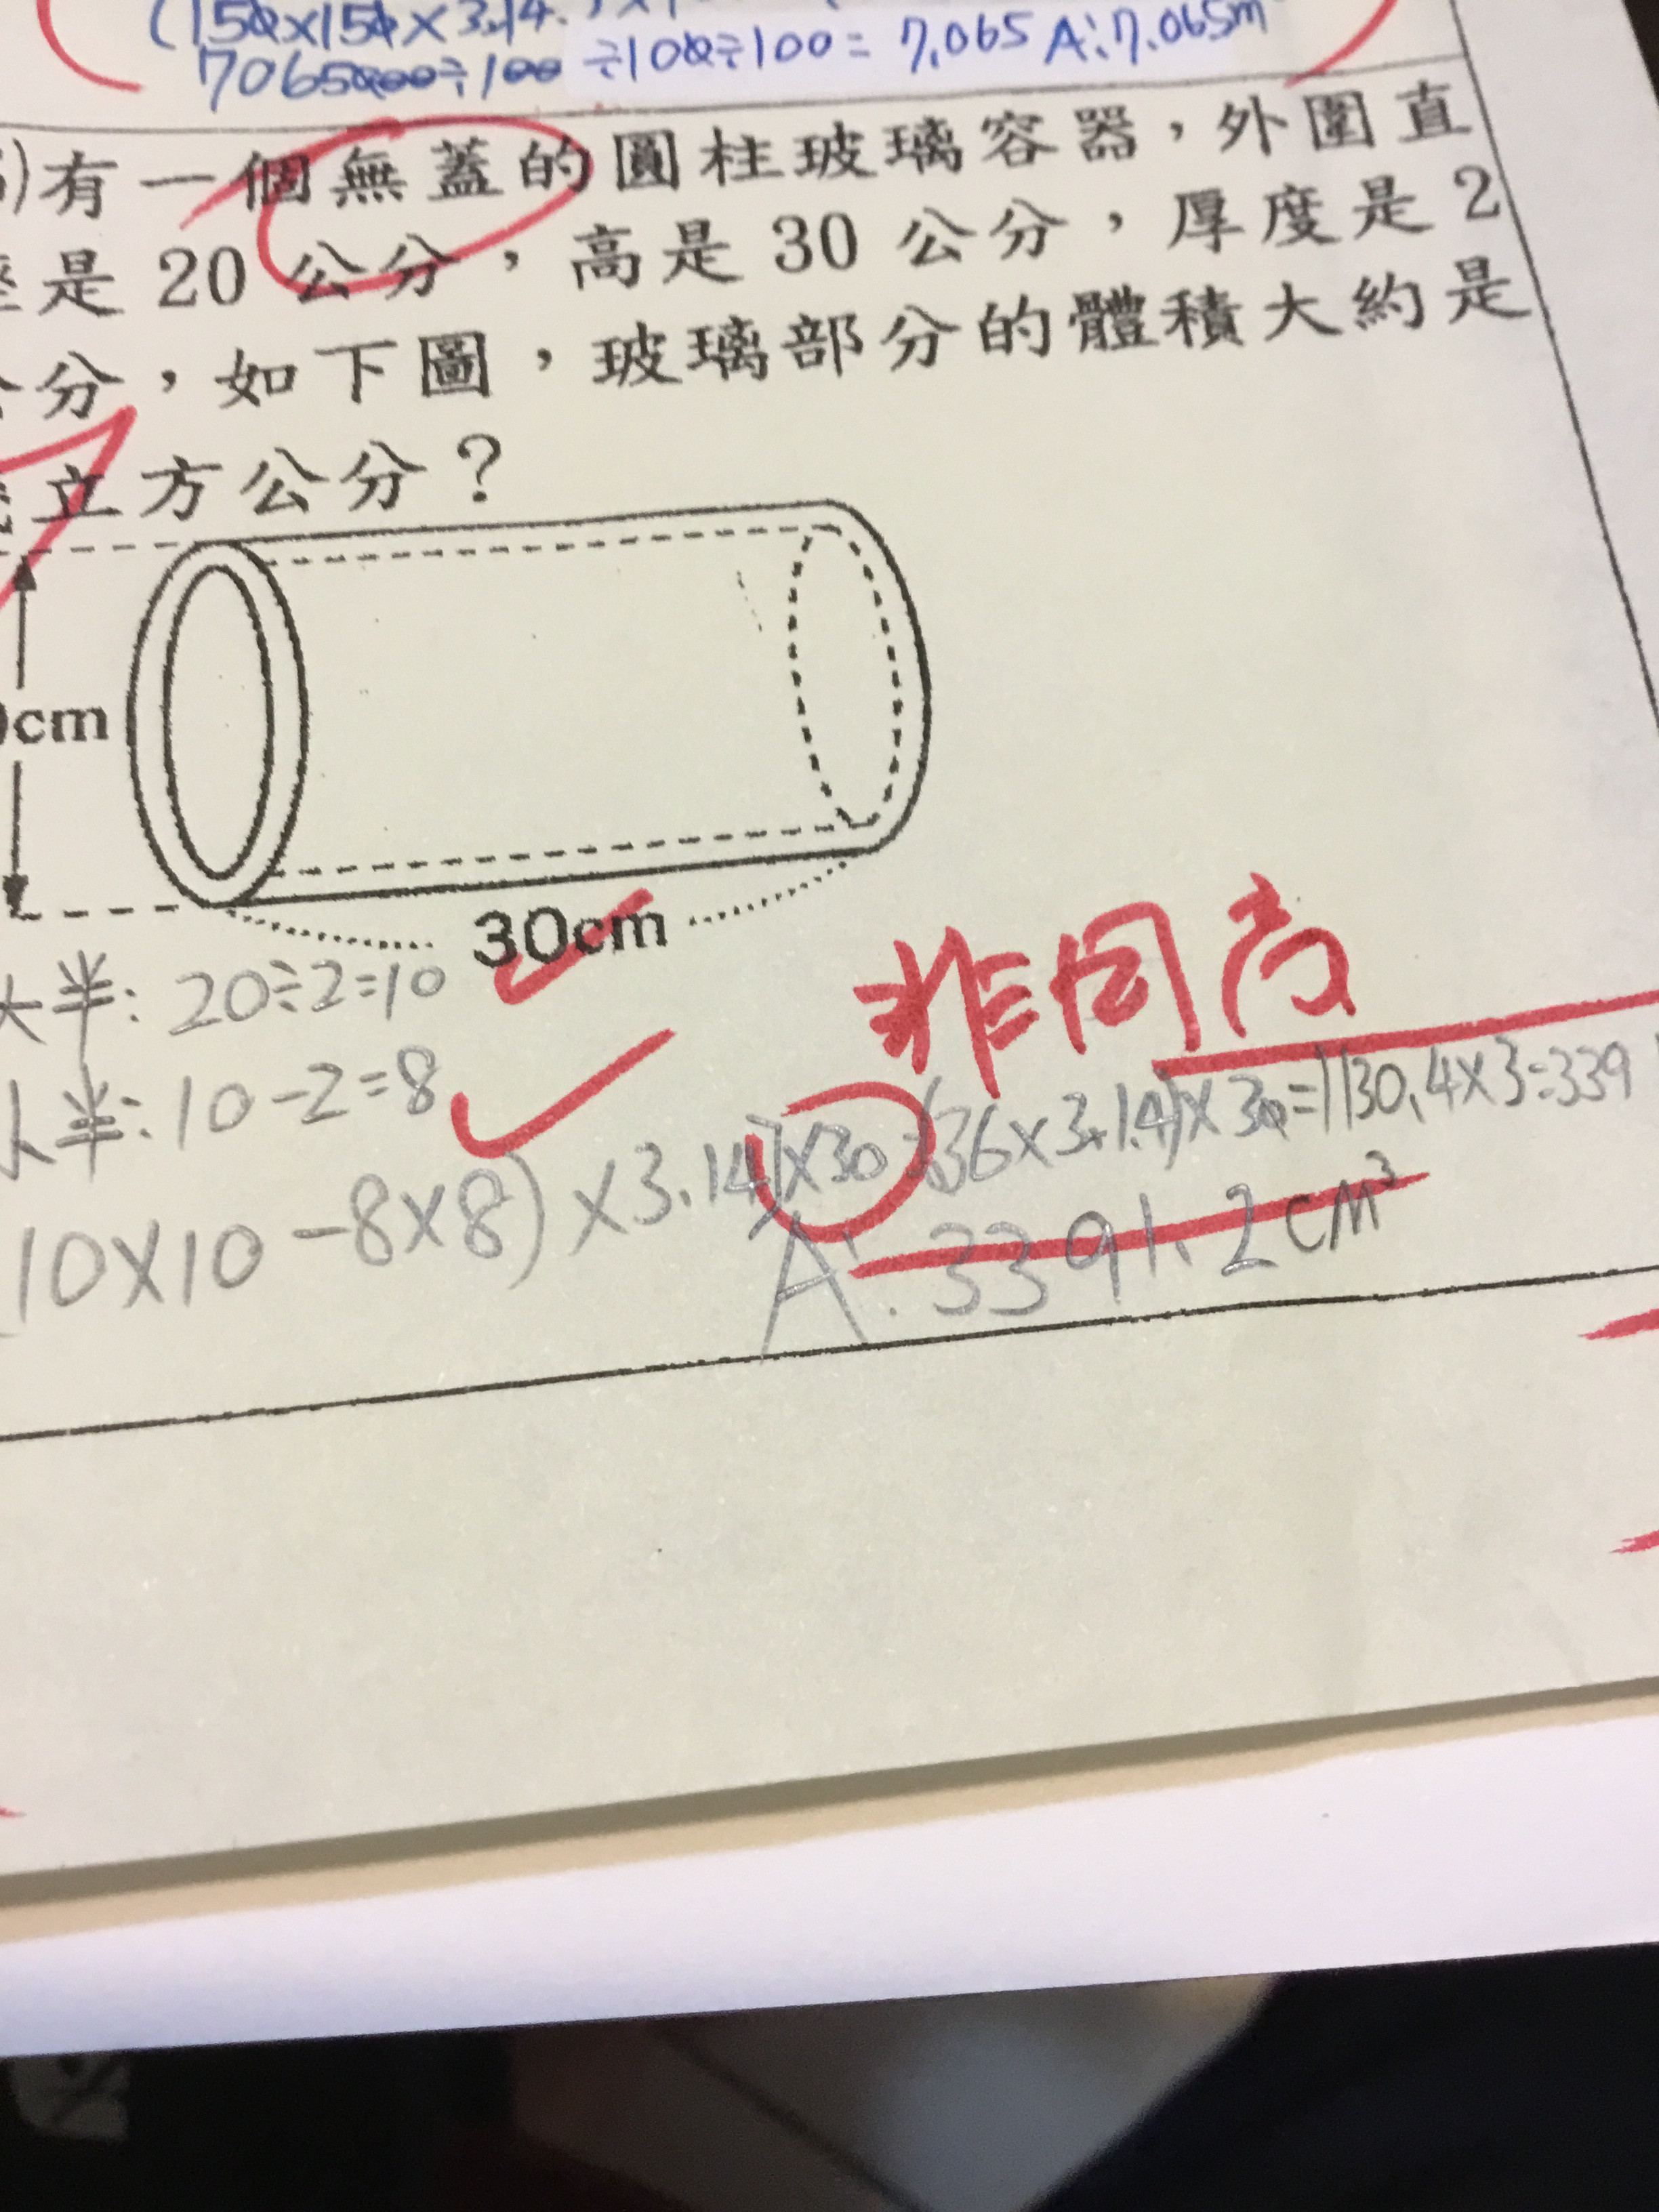 (150×150×3.14
7065000÷100 ÷100÷100=7.065 A:7.065m
)有一個無蓋的圓柱玻璃容器，外圍直
是 20 公分，高是 30 公分，厚度是 2
分，如下圖，玻璃部分的體積大約是
立方公分？
cm
30cm
大半:20÷2=10
非同高
小半:10-2=8
10×10-8×8)×3.14]×30=(36×3.14)×30=1130.4×3=339
A:3391.2cm³